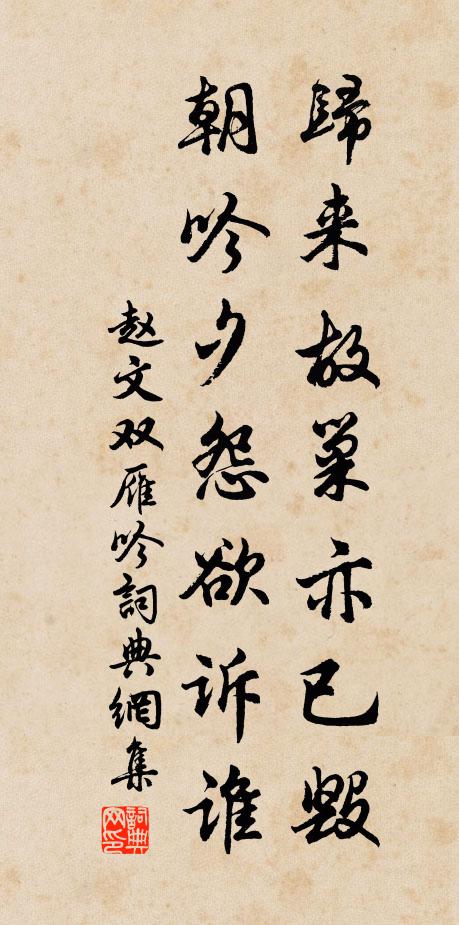 歸来故巢亦已毁
朝吟夕怨欲诉谁
赵文双雁吟詞典網集
詞典網印